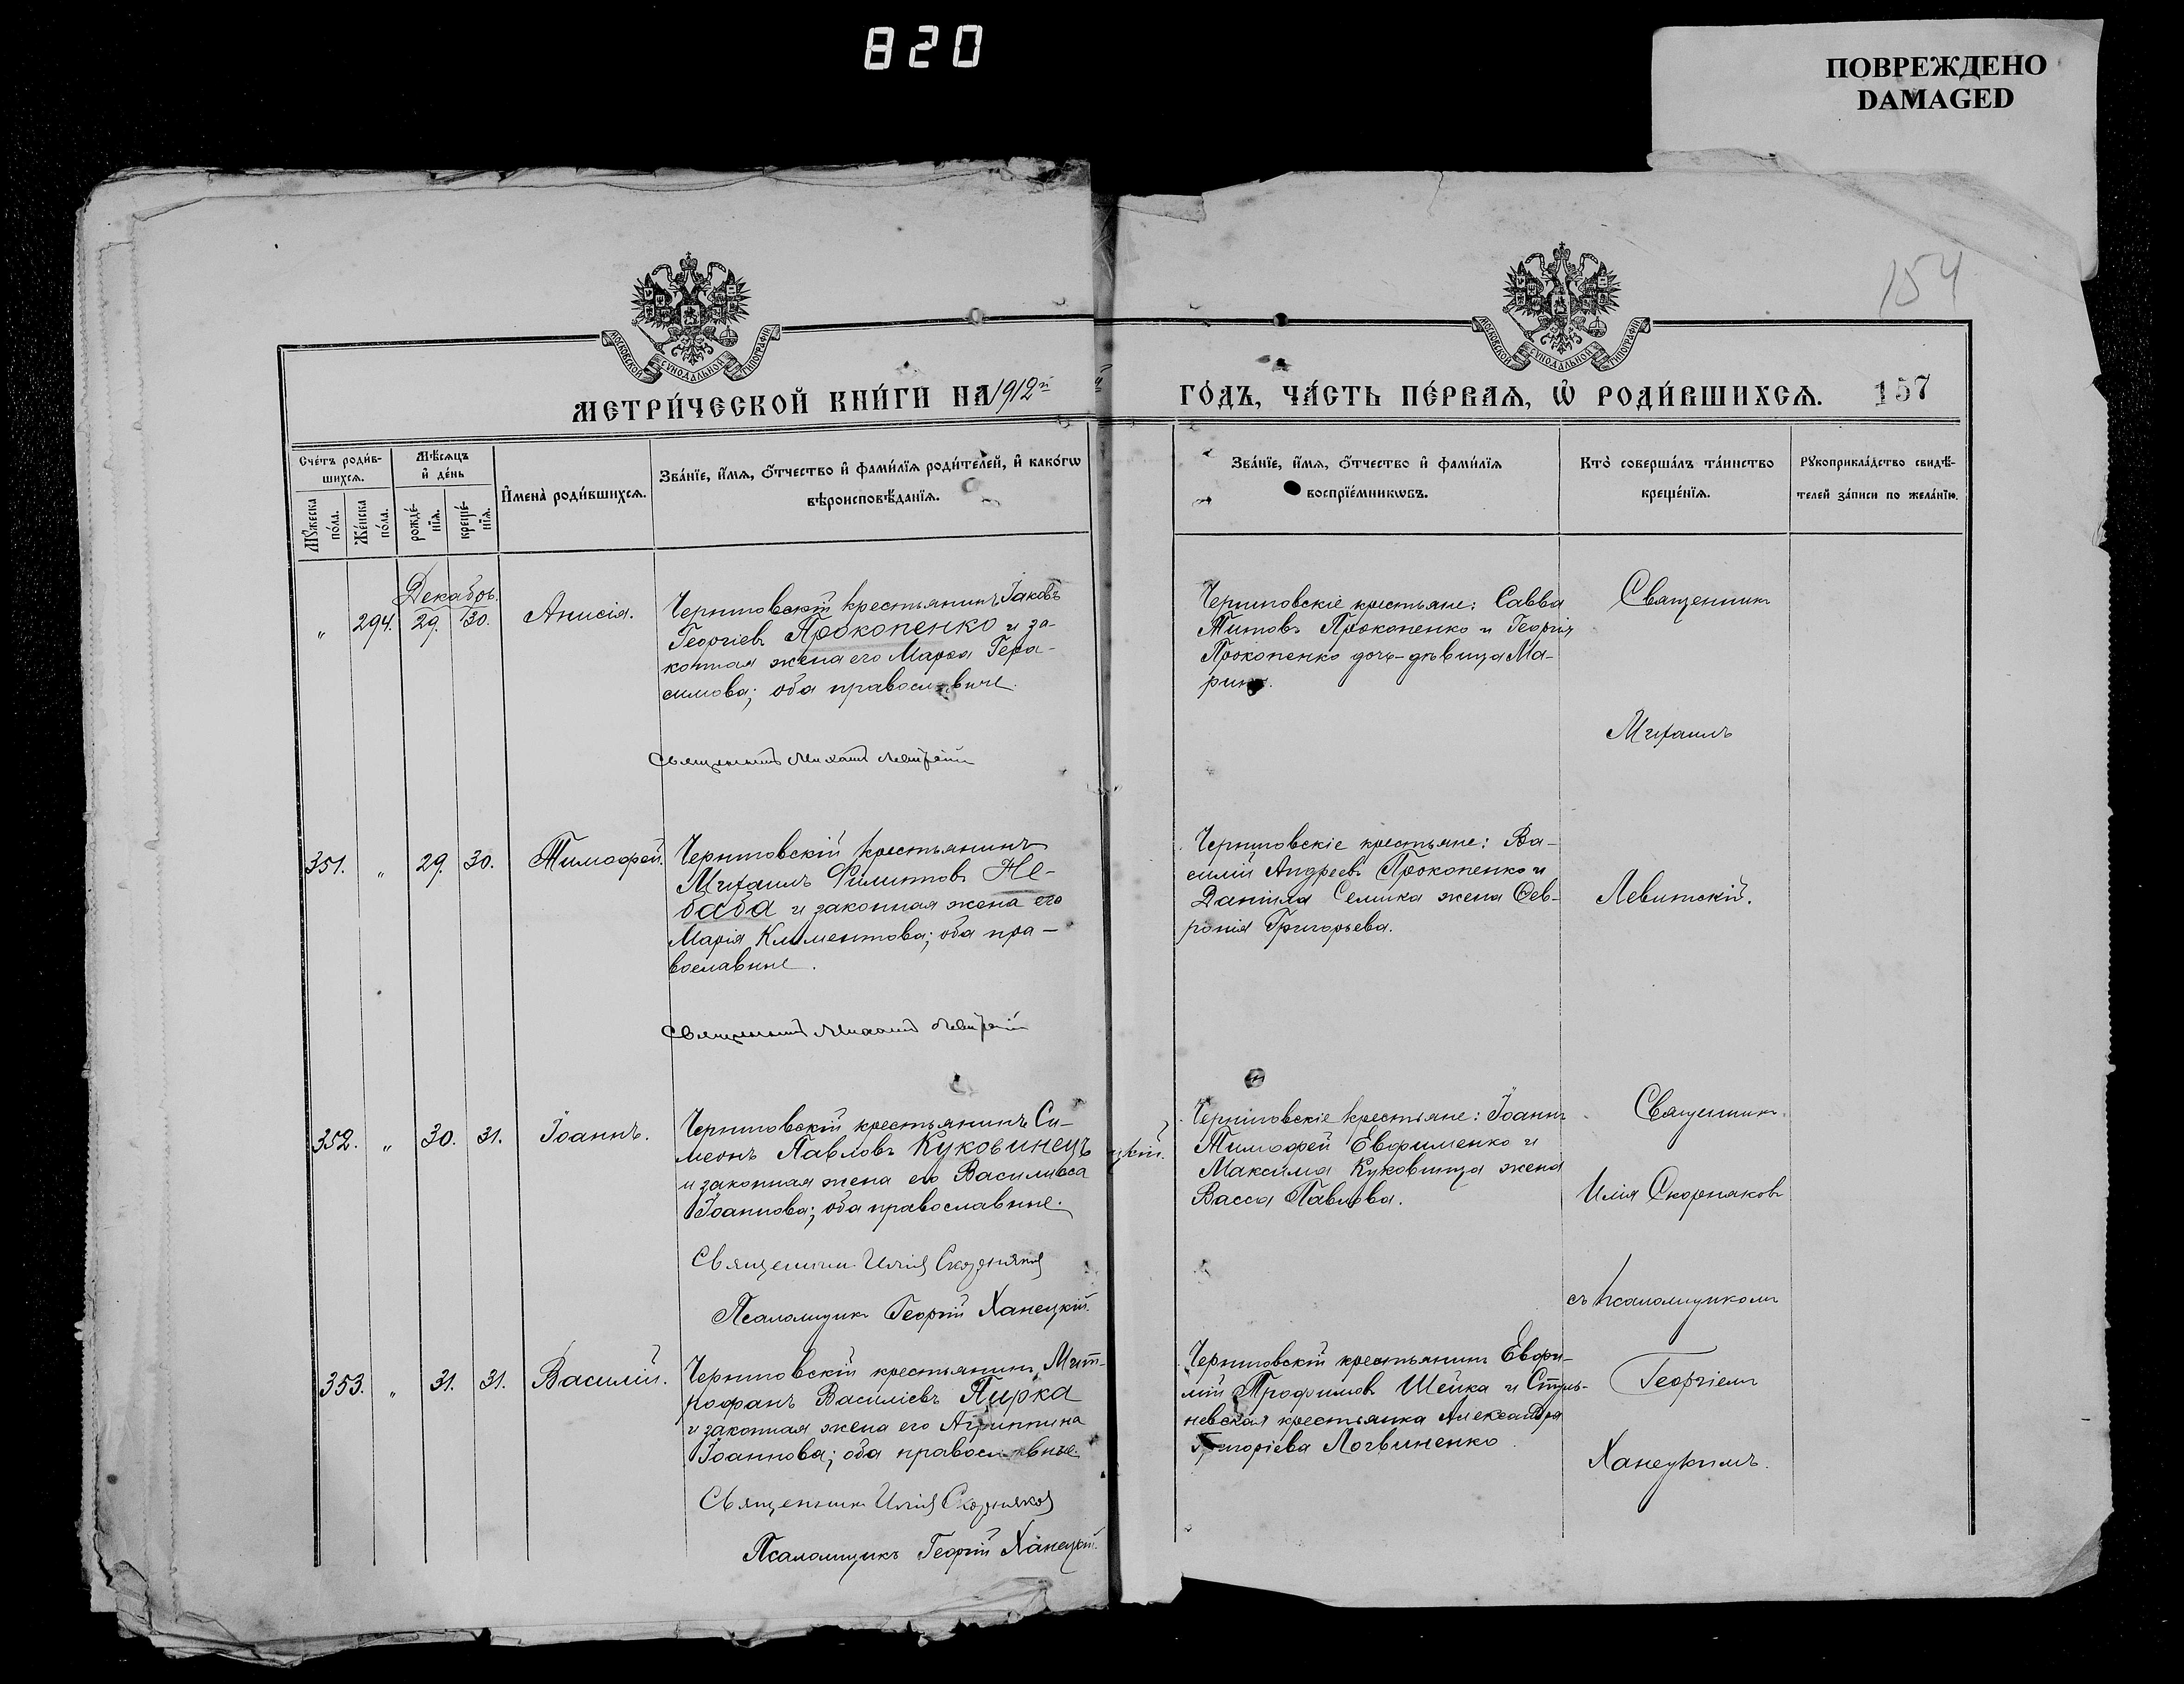 820
ПОВРЕЖДЕНО
DAMAGED
154
МОСКОВСКОЙ СѴНОДАЛЬНОЙ ТИПОГРАФІИ
МОСКОВСКОЙ СѴНОДАЛЬНОЙ ТИПОГРАФІИ
МЕТРИ́ЧЕСКОЙ КНИ́ГИ НА 1912й
ГО́ДЪ, ЧА́СТЬ ПЕ́РВАЯ, Ѡ РОДИ́ВШИХСЯ. 157
Сче́тъ роди́в-
шихся.
Мꙋ́жеска
по́ла.
Же́нска
по́ла.
Мѣ́сяцъ
и де́нь
рожде́-
нїя.
креще́-
нїя.
Имена̀ роди́вшихся.
Зва́нїе, и́мя, ѻ́тчество и фами́лїя роди́телей, и како́гѡ
вѣроисповѣ́данїя.
Зва́нїе, и́мя, ѻ́тчество и фами́лїя
воспрїе́мникѡвъ.
Кто̀ соверша́лъ та́инство
креще́нїя.
Рꙋкоприкла́дство свидѣ́-
телей за́писи по жела́нїю.
Декабрь.
„ 294. 29. 30. Анисія.
Черниговскій крестьянинъ Іаковъ
Георгіевъ Прокопенко и за-
конная жена его Марѳа Гера-
симова; оба православные.
Священникъ Михаилъ Левитскій
Черниговскіе крестьяне: Савва
Титовъ Прокопенко и Георгія
Прокопенко дочь-дѣвица Ма-
рина.
Священникъ
Михаилъ
351. „ 29. 30. Тимофей.
Черниговскій крестьянинъ
Михаилъ Филиповъ Не-
баба и законная жена его
Марія Климентова; оба пра-
вославные.
Священникъ Михаилъ Левитскій
Черниговскіе крестьяне: Ва-
силій Андреевъ Прокопенко и
Даніила Семика жена Фев-
ронія Григорьева.
Левитскій.
352. „ 30. 31. Іоаннъ.
Черниговскій крестьянинъ Си-
меонъ Павловъ Куковинецъ
и законная жена его Василисса
Іоаннова; оба православные.
Священникъ Илія Скорняковъ
Псаломщикъ Георгій Ханецкій.
Черниговскіе крестьяне: Іоаннъ
Тимофей Евфименко и
Максима Куковинца жена
Васса Павлова.
Священникъ
Илія Скорняковъ
съ псаломщикомъ
353. „ 31. 31. Василій.
Черниговскій крестьянинъ Мит-
рофанъ Василіевъ Пирка
и законная жена его Агриппина
Іоаннова; оба православные.
Священникъ Илія Скорняковъ
Псаломщикъ Георгій Ханецкій.
Черниговскій крестьянинъ Евфи-
мій Трофимовъ Шейка и
крестьянка Александра
Григоріева Логвиненко.
Георгіемъ
Ханецкимъ.